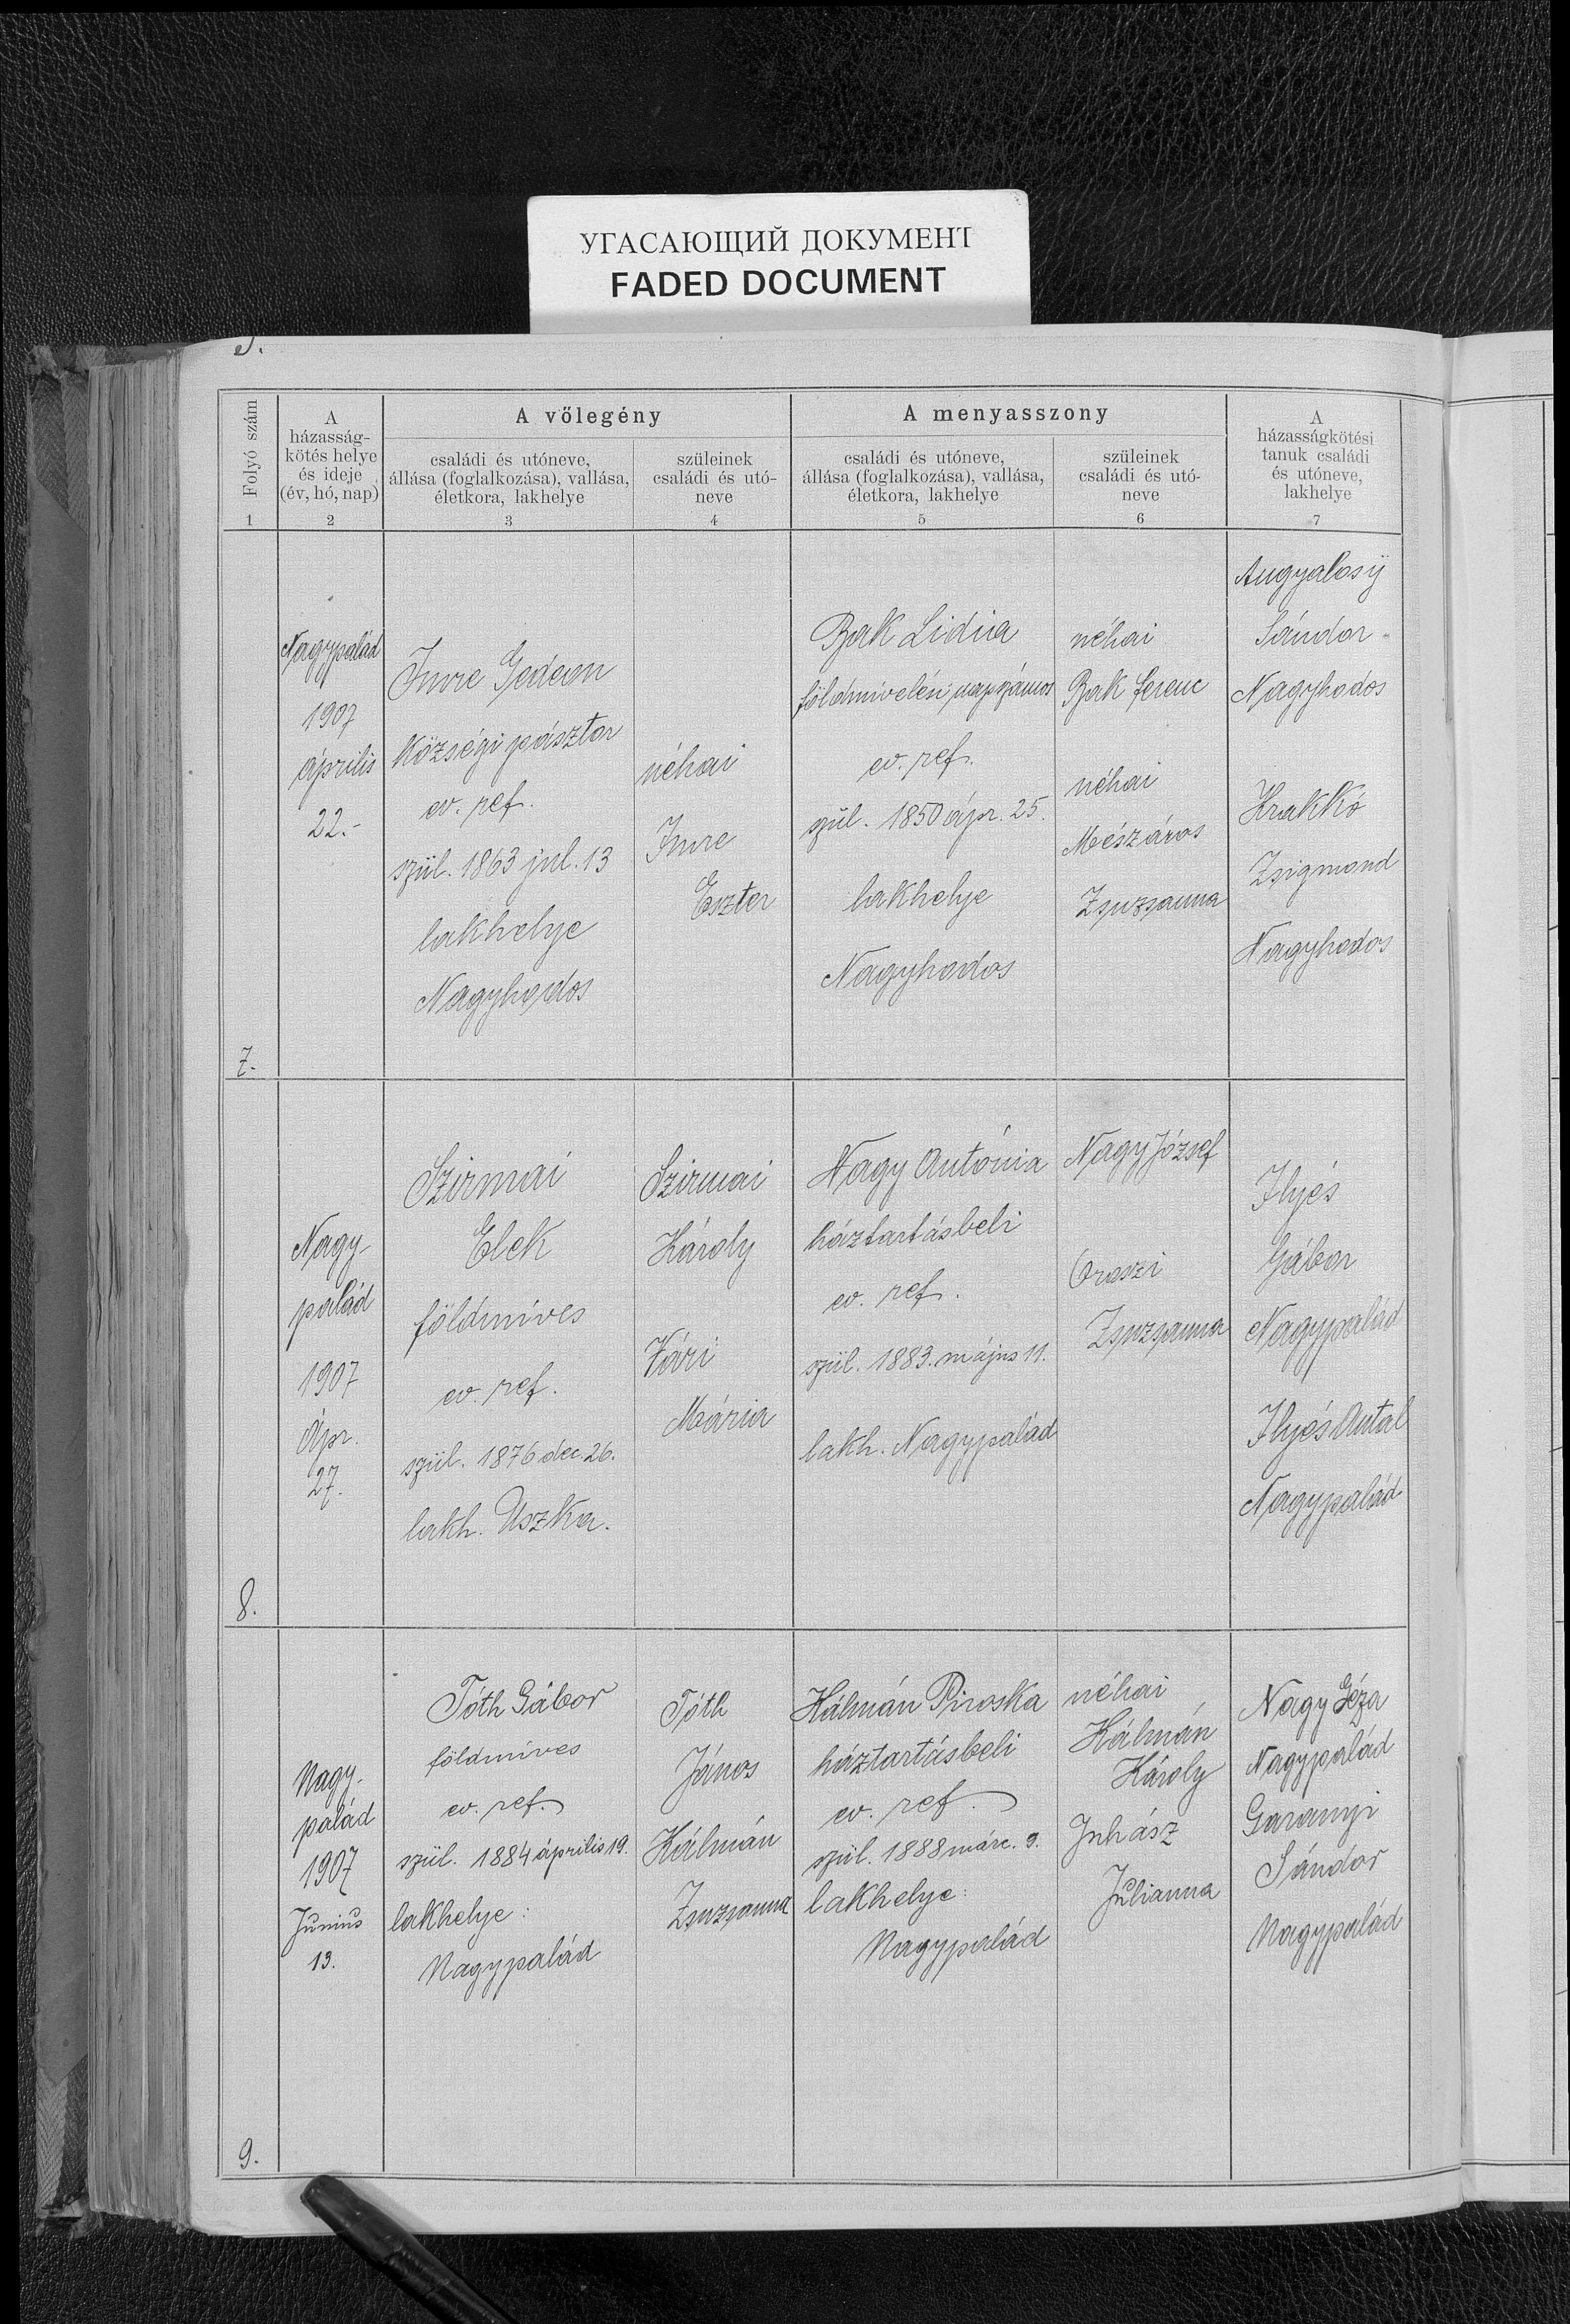 УГАСАЮЩИЙ ДОКУМЕНТ
FADED DOCUMENT
Folyó szám
A
házasság-
kötés helye
és ideje
(év, hó, nap)
A vőlegény
családi és utóneve,
állása (foglalkozása), vallása,
életkora, lakhelye
szüleinek
családi és utó-
neve
A menyasszony
családi és utóneve,
állása (foglalkozása), vallása,
életkora, lakhelye
szüleinek
családi és utó-
neve
A
házasságkötési
tanuk családi
és utóneve,
lakhelye
1
2
3
4
5
6
7
7.
Nagypalád
1907
április
22.-
Imre Gedeon
Községi pásztor
ev. ref.
szül. 1863 jul. 13
lakhelye
Nagyhodos
néhai
Imre
Eszter
Bak Lidia
földmivelési napszámos
ev. ref.
szül. 1850 ápr. 25.
lakhelye
Nagyhodos
néhai
Bak Ferenc
néhai
Mészáros
Zsuzsanna
Angyalosÿ
Sándor
Nagyhodos
Krakkó
Zsigmond
Nagyhodos
8.
Nagy-
palád
1907
Ápr.
27.
Szirmai
Elek
földmíves
ev. ref.
szül. 1876 dec. 26.
lakh. Uszka.
Szirmai
Károly
Vári
Mária
Nagy Antónia
háztartásbeli
ev. ref.
szül. 1883. május 11.
lakh. Nagypalád
Nagy József
Oroszi
Zsuzsanna
Ilyés
Gábor
Nagypalád
Ilyés Antal
Nagypalád
9.
Nagy-
palád
1907
Junius
13.
Tóth Gábor
földmíves
ev. ref.
szül. 1884 április 19.
lakhelye:
Nagypalád
Tóth
János
Kálmán
Zsuzsanna
Kálmán Piroska
háztartásbeli
ev. ref.
szül. 1888 márc. 9.
lakhelye:
Nagypalád
néhai
Kálmán
Károly
Juhász
Julianna
Nagy Géza
Nagypalád
Garanyi
Sándor
Nagypalád